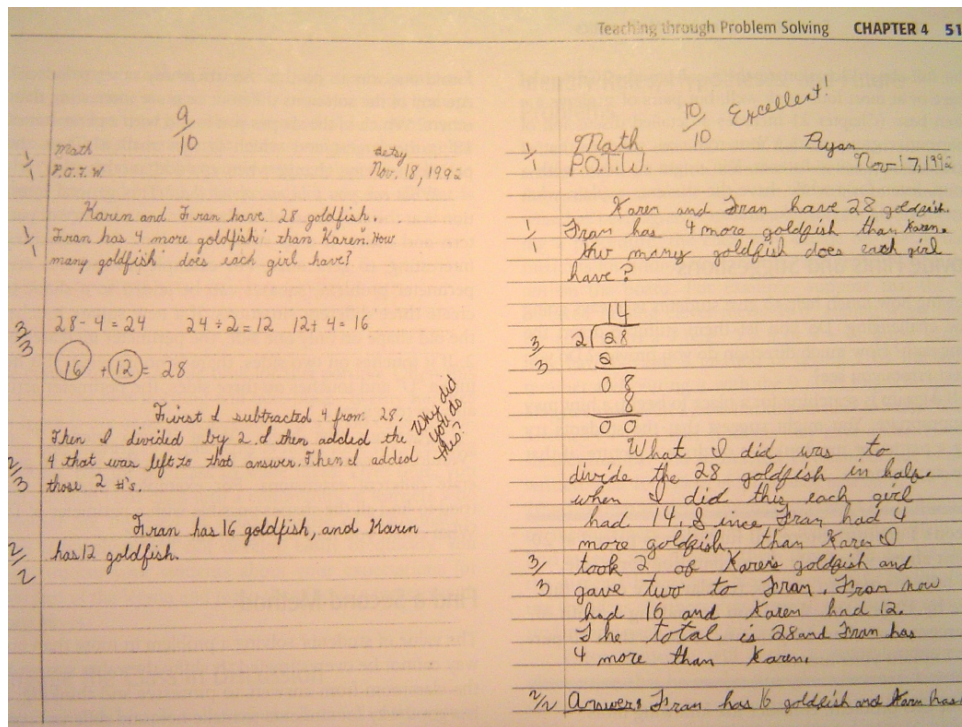 Teaching through Problem Solving CHAPTER 4 51
9/10
1/1
Math
Betsy
P.O.T.W.
Nov. 18, 1992
Karen and Fran have 28 goldfish.
1/1
Fran has 4 more goldfish than Karen. How
many goldfish does each girl have?
3/3
28 - 4 = 24 24 ÷ 2 = 12 12 + 4 = 16
16 + 12 = 28
First I subtracted 4 from 28.
Then I divided by 2. I then added the
4 that was left to that answer. Then I added
2/3
those 2 #'s.
Why did
you do
this?
Fran has 16 goldfish, and Karen
2/2
has 12 goldfish.
10/10 Excellent!
1/1
Math
Ryan
P.O.T.W.
Nov 17, 1992
Karen and Fran have 28 goldfish
1/1
Fran has 4 more goldfish than Karen.
How many goldfish does each girl
have?
14
3/3
2 28
2
0 8
8
0 0
What I did was to
divide the 28 goldfish in half.
when I did this each girl
had 14. Since Fran had 4
more goldfish than Karen I
3/3
took 2 of Karen's goldfish and
gave two to Fran. Fran now
had 16 and Karen had 12.
The total is 28 and Fran has
4 more than Karen.
2/2
Answer: Fran has 16 goldfish and Karen has